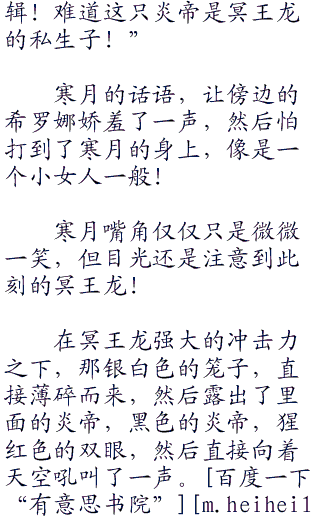 辑！难道这只炎帝是冥王龙
的私生子！”
寒月的话语，让傍边的
希罗娜娇羞了一声，然后怕
打到了寒月的身上，像是一
个小女人一般！
寒月嘴角仅仅只是微微
一笑，但目光还是注意到此
刻的冥王龙！
在冥王龙强大的冲击力
之下，那银白色的笼子，直
接薄碎而来，然后露出了里
面的炎帝，黑色的炎帝，猩
红色的双眼，然后直接向着
天空吼叫了一声。[百度一下
“有意思书院”][m.heihei1